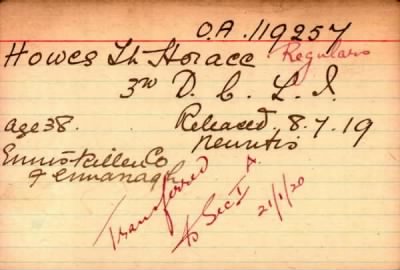 O.A. 119257
Howes Lt Horace Regulars
3rd D. C. L. I.
age 38. Released, 8.7.19
Neuritis
Enniskillen Co
Fermanagh
Transferred
to Sec I A.
21/1/20